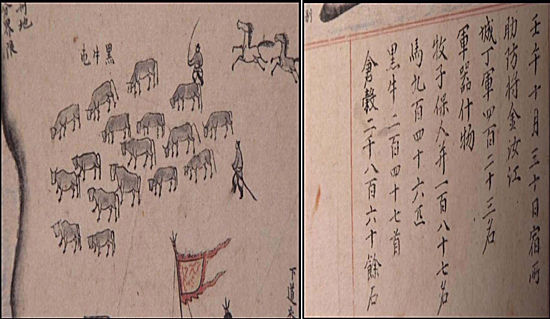 黑牛屯
下道
壬午十月三十日宿所
助防將金汝江
城丁軍四百二十三名
軍器什物
牧子保人幷一百八十七名
馬九百四十六匹
黑牛二百四十七首
倉穀二千八百六十餘石